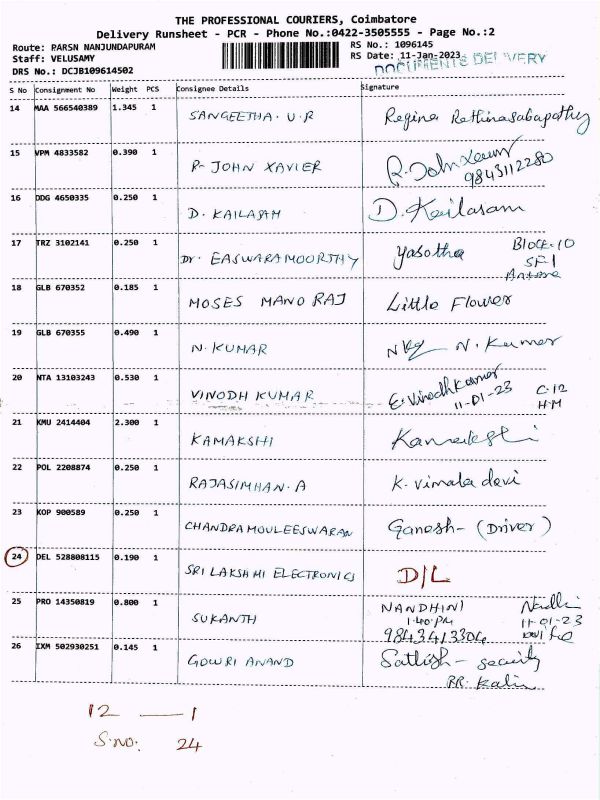 THE PROFESSIONAL COURIERS, Coimbatore
Delivery Runsheet - PCR - Phone No.:0422-3505555 - Page No.:2
Route: PARSN NANJUNDAPURAM RS No.: 1096145
Staff: VELUSAMY RS Date: 11-Jan-2023
DRS No.: DCJB109614502 DOCUMENTS DELIVERY
S No Consignment No Weight PCS Consignee Details Signature
14 MAA 566540389 1.345 1 SANGEETHA. U.R Regina Rethinasabapathy
15 VPM 4833582 0.390 1 P. JOHN XAVIER R. John Xavier
9843112280
16 DDG 4650335 0.250 1 D. KAILASAM D. Kailasam
17 TRZ 3102141 0.250 1 Dr. EASWARAMOORTHY Yasotha Block-10
SF-1
18 GLB 670352 0.185 1 MOSES MANO RAJ Little Flower
19 GLB 670355 0.490 1 N. KUMAR N. Kumar
20 NTA 13103243 0.530 1 VINODH KUMAR E. Vinodh Kumar C-12
11-01-23 H.M
21 KMU 2414404 2.300 1 KAMAKSHI Kamakshi
22 POL 2208874 0.250 1 RAJASIMHAN. A K. Vimala devi
23 KOP 900589 0.250 1 CHANDRAMOULEESWARAN Ganesh - (Driver)
24 DEL 528808115 0.190 1 SRI LAKSHMI ELECTRONICS D/L
25 PRO 14350819 0.800 1 SUKANTH NANDHINI
1.40.PM 11-01-23
9843413304
26 IXM 502930251 0.145 1 GOWRI ANAND Sathish - security
12 — 1
S.NO: 24